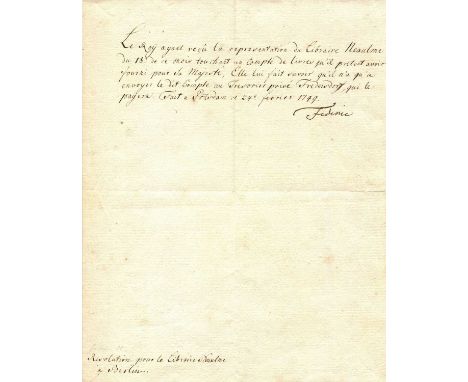 Le Roy ayant reçu la representation du Libraire Neaulme
du 18e de ce mois touchant un Compte de livres qu'il pretend avoir
fourni pour Sa Majesté, Elle lui fait savoir qu'il n'a qu'a
envoyer le dit Compte au Tresorier privé Fredersdorff qui le
payera. Fait a Potsdam ce 24e fevrier 1749.
Federic
Resolution pour le Libraire Neaulme
a Berlin.